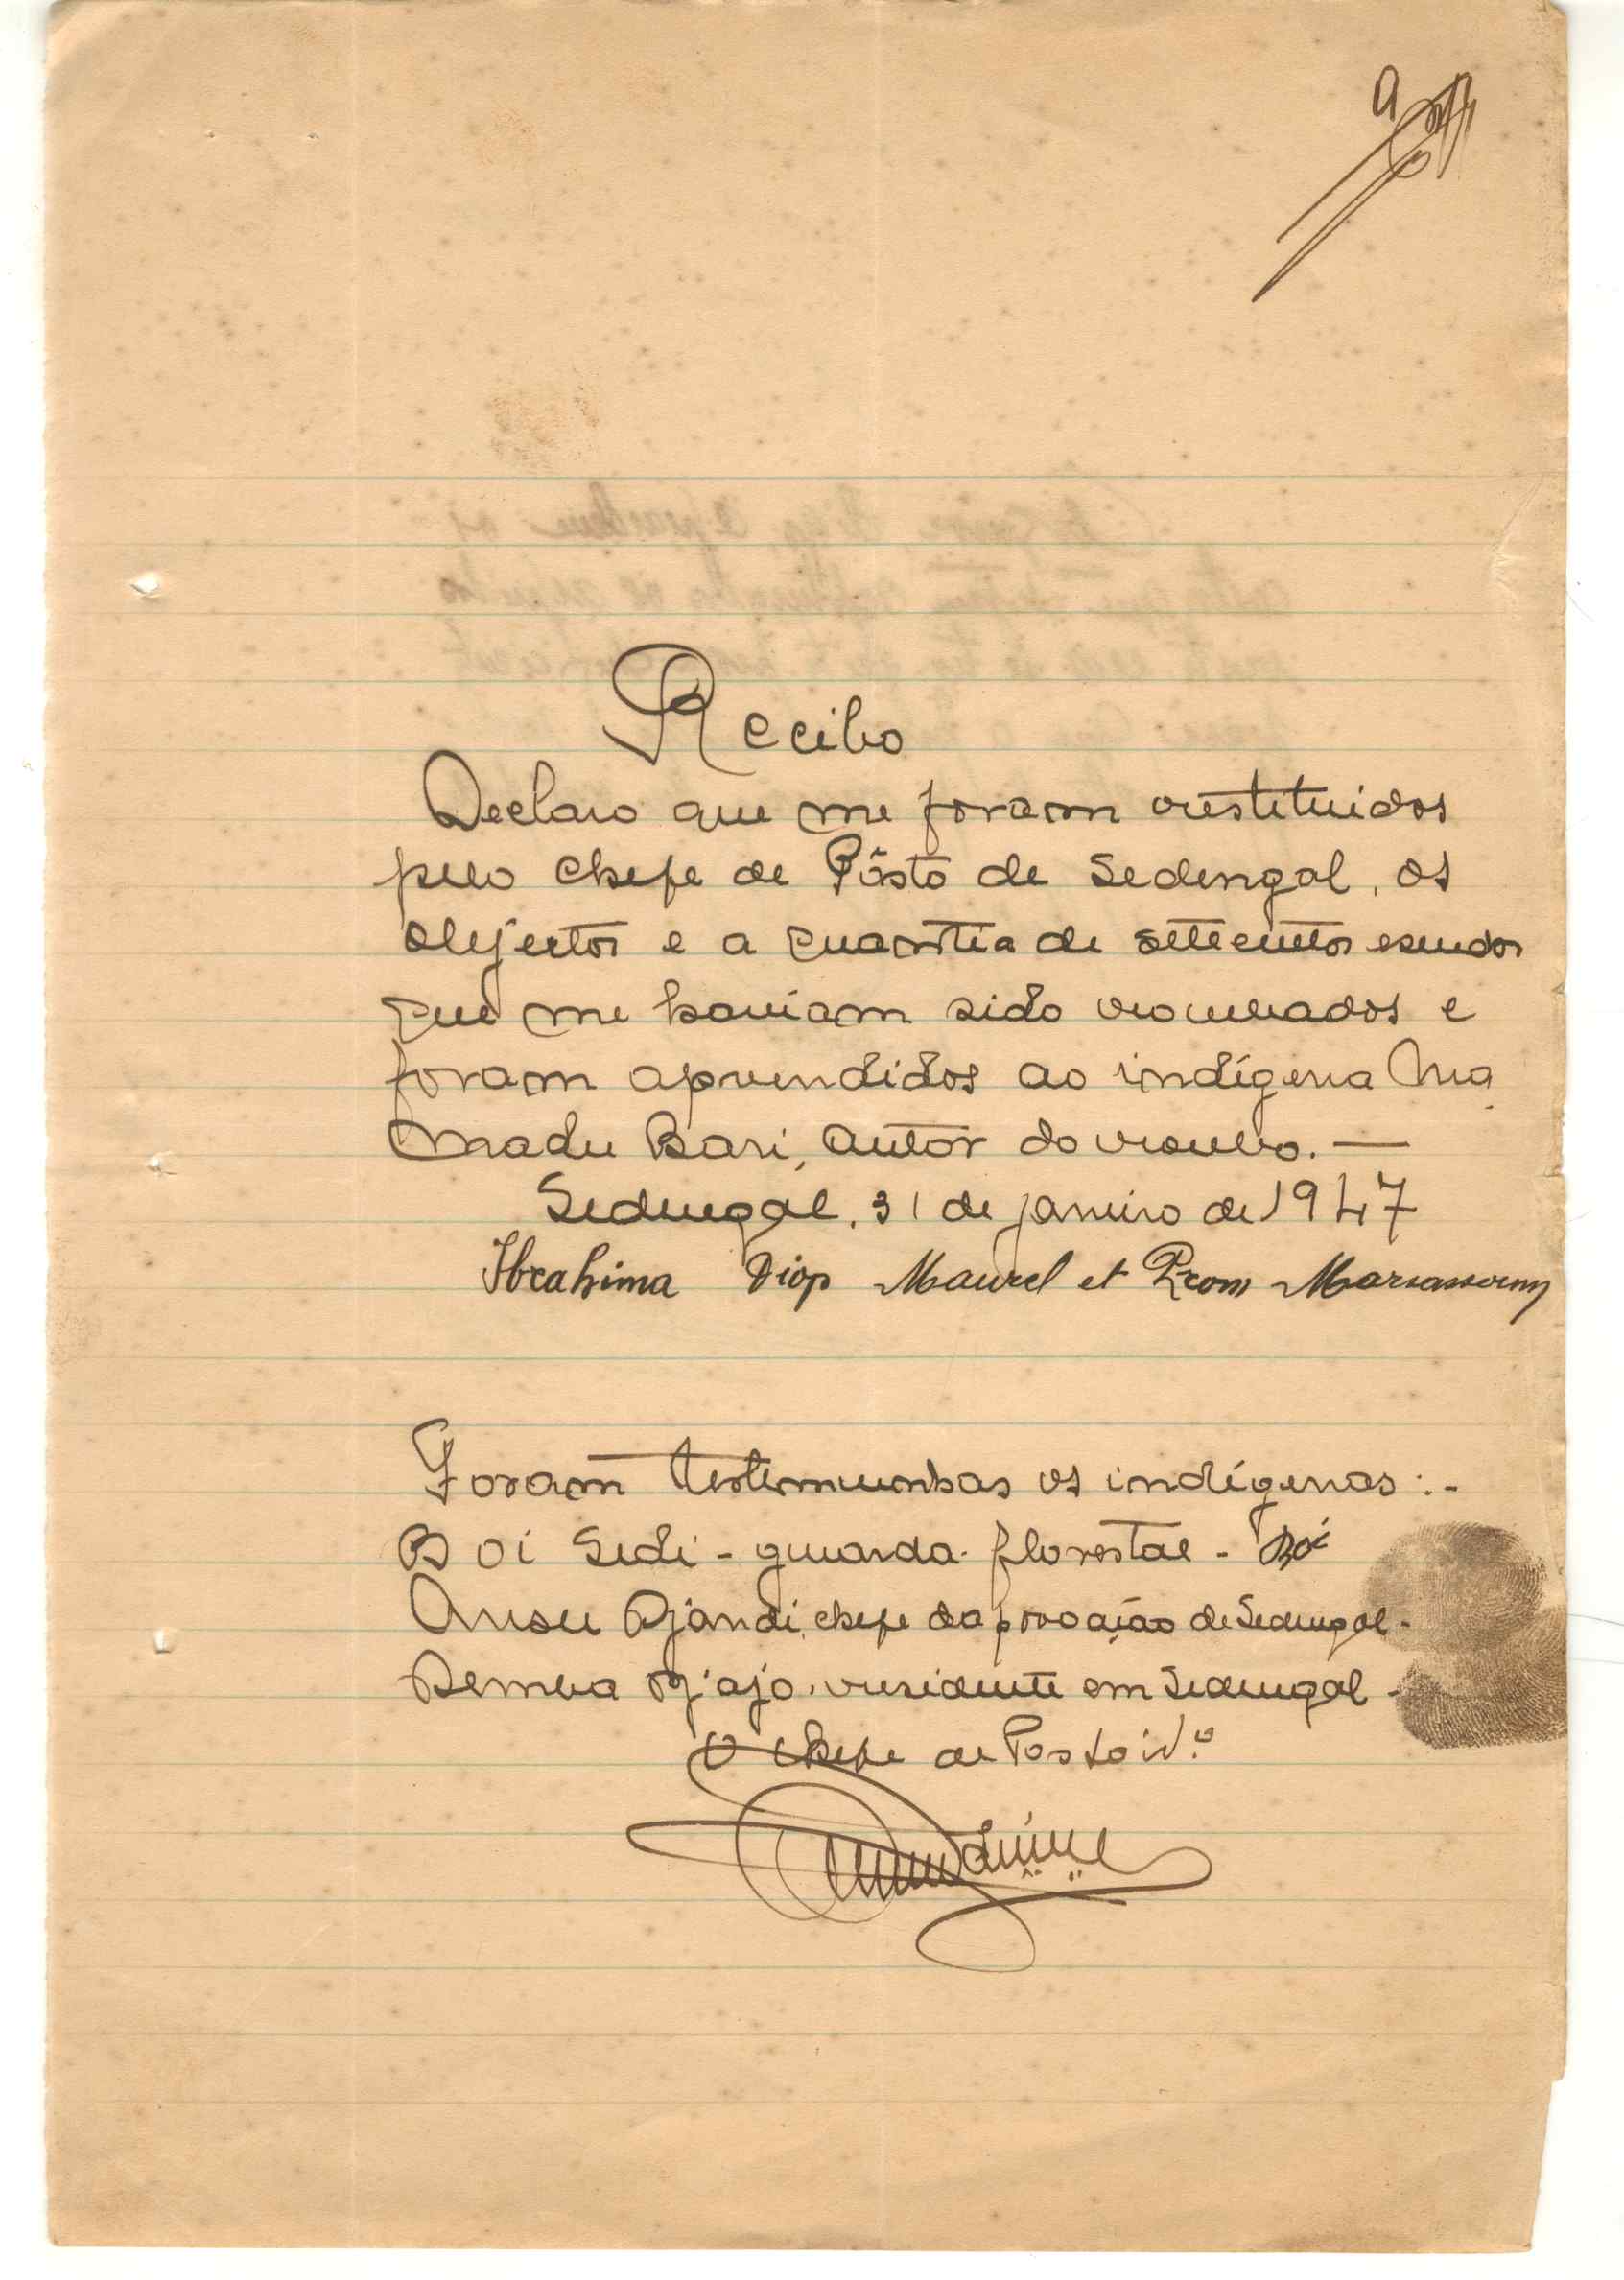 9
Recibo
Declaro que me foram restituidos
pelo chefe de Pôsto de Sedengal, os
objectos e a quantia de setecentos escudos
que me haviam sido roubados e
foram aprendidos ao indígena Ma
madu Bari, autor do roubo. —
Sedengal, 31 de janeiro de 1947
Ibrahima Diop Maurel et Prom Marsassoum
Foram testemunhas os indígenas :-
Boi Sedi - guarda florestal - Boi
Ansu Djandi, chefe da povoação de Sedengal -
Demba Djajo, residente em Sedengal -
O chefe de Posto